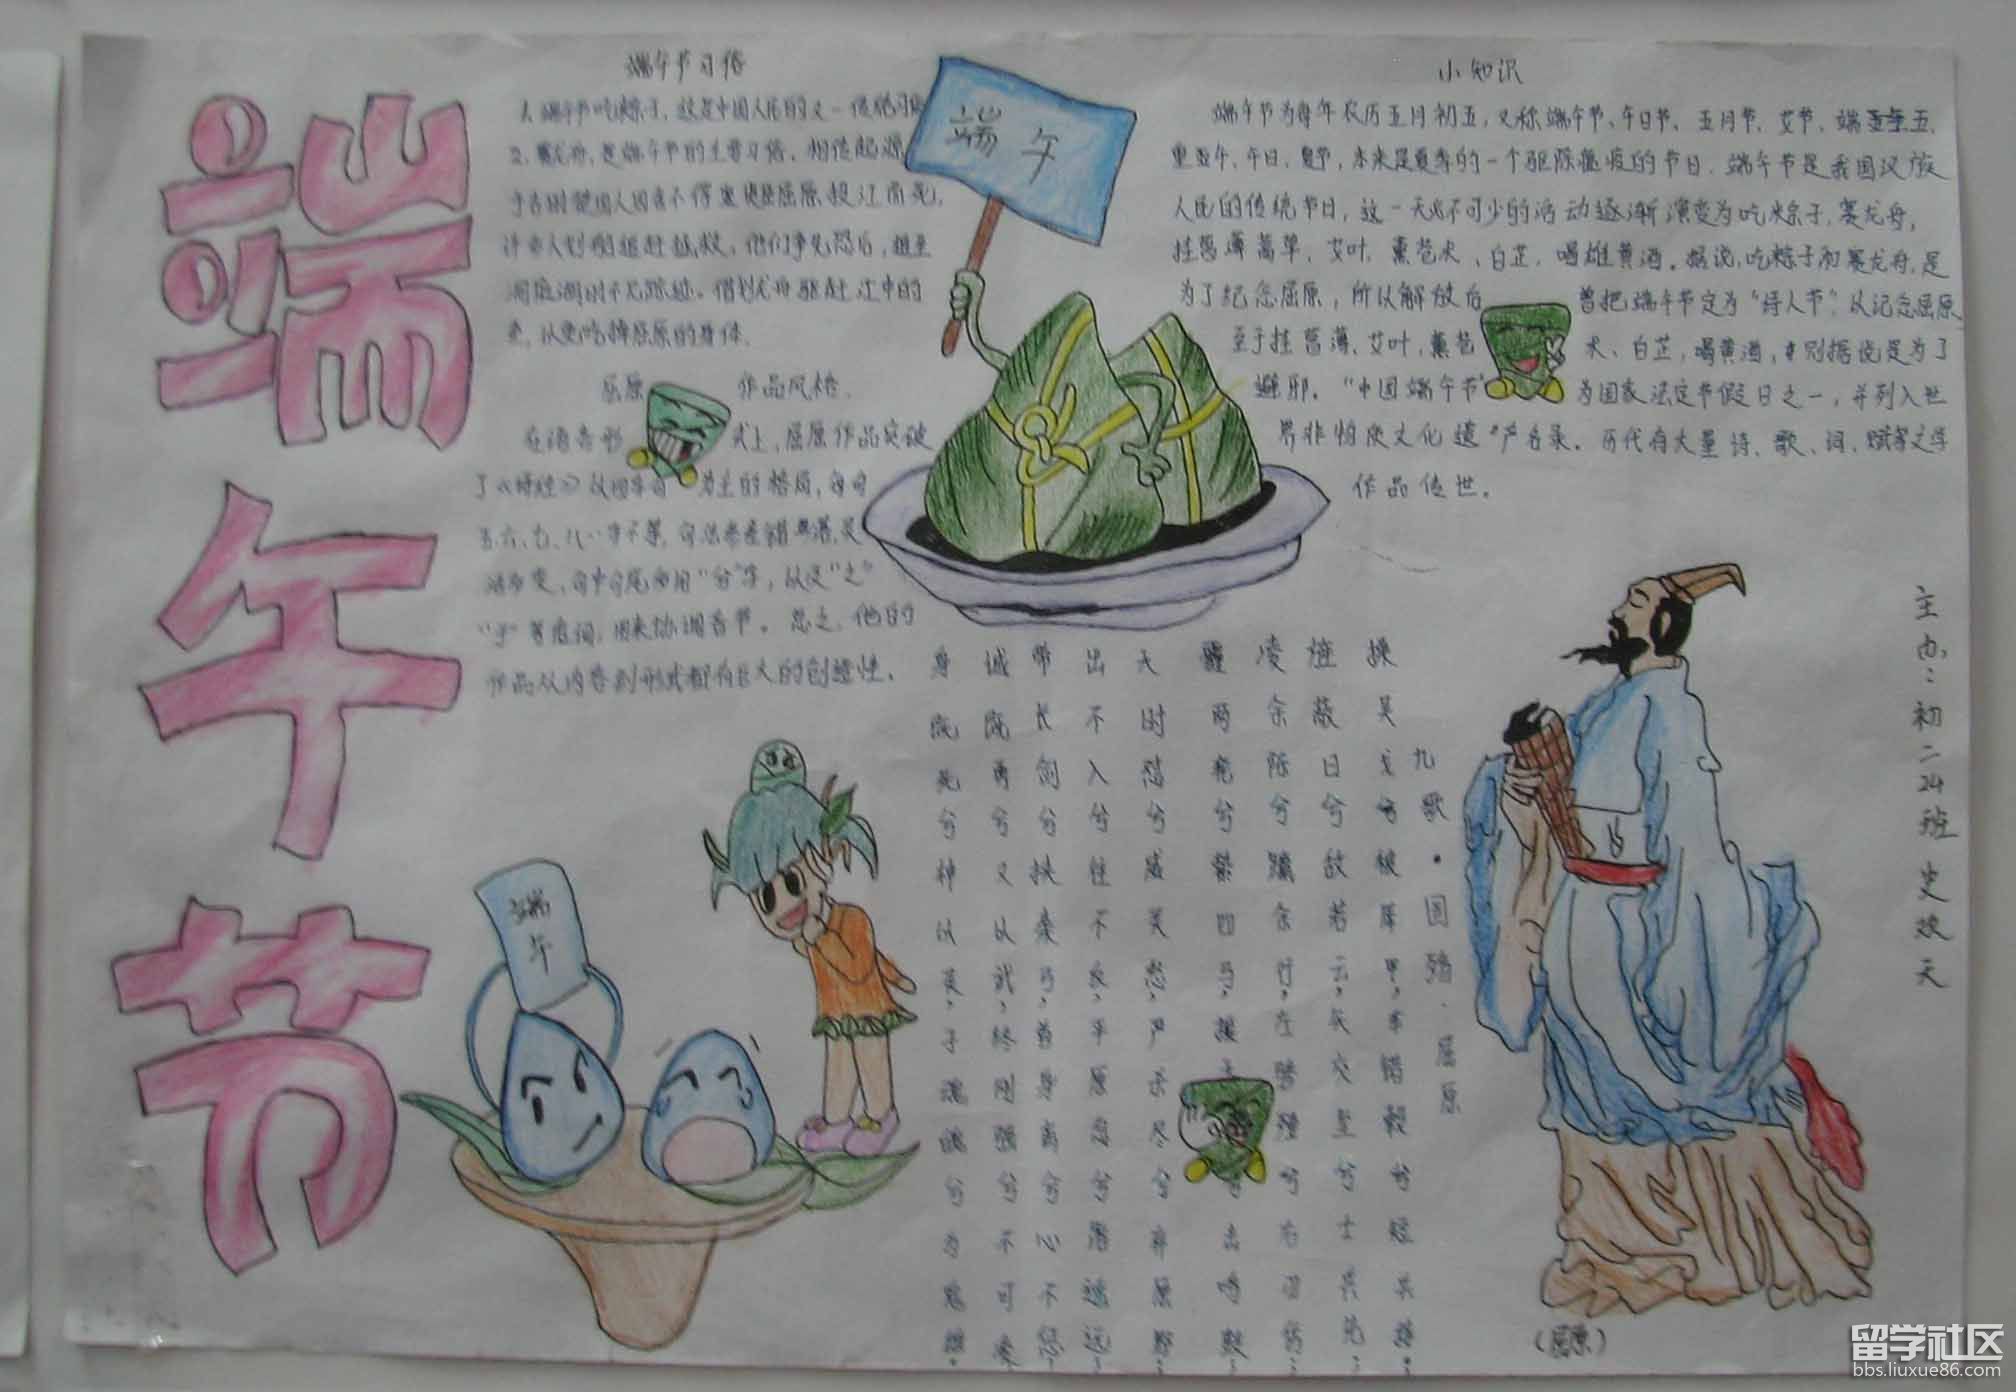 端午节
端午节习俗
1. 端午节吃粽子,这是中国人民的又一传统习
2、赛龙舟,是端午节的主要习俗。相传起源
于古时楚国人因舍不得 屈原投江而死,
许多人划船追赶拯救。他们争先恐后,追至
洞庭湖时不见踪迹。借划龙舟驱赶江中的
鱼,以免吃掉屈原的身体.
屈原作品风格.
在语言形式上,屈原作品突破
了《诗经》以四字句为主的格局,每句
五、六、七、八、字不等,句法参差错落,灵
活多变,句中句尾多用“兮”字,以及“之”
“于” 等虚词,用来协调音节。总之,他的
作品从内容到形式都有巨大的创造性。
端午
小知识
端午节为每年农历五月初五,又称端午节、午日节、五月节、艾节、端五、
重午、午日、夏节,本来是夏季的一个驱除瘟疫的节日.端午节是我国汉族
人民的传统节日,这一天必不可少的活动逐渐演变为吃粽子,赛龙舟,
挂菖蒲、蒿草、艾叶,薰苍术、白芷,喝雄黄酒。据说,吃粽子和赛龙舟,是
为了纪念屈原,所以解放后曾把端午节定为“诗人节”,以纪念屈原
至于挂菖蒲、艾叶,薰苍术、白芷,喝黄酒,则据说是为了
避邪.“中国端午节”为国家法定节假日之一,并列入世
界非物质文化遗产名录。历代有大量诗、歌、词、赋等文学
作品传世。
九歌·国殇·屈原
操吴戈兮被犀甲,车错毂兮短兵接。
旌蔽日兮敌若云,矢交坠兮士兵先;
凌余阵兮躐余行,左骖殪兮右刃伤;
霾两轮兮絷四马,援 击鸣鼓;
天时怼兮威灵怒,严杀尽兮弃原野;
出不入兮往不反,平原忽兮路遥远;
带长剑兮挟秦弓,首身离兮心不惩;
诚既勇兮又以武,终刚强兮不可凌
身既死兮神以灵,子魂魄兮为鬼雄。
端午
(屈原)
主办:初二24班 史 天
留学社区
bbs.liuxue86.com